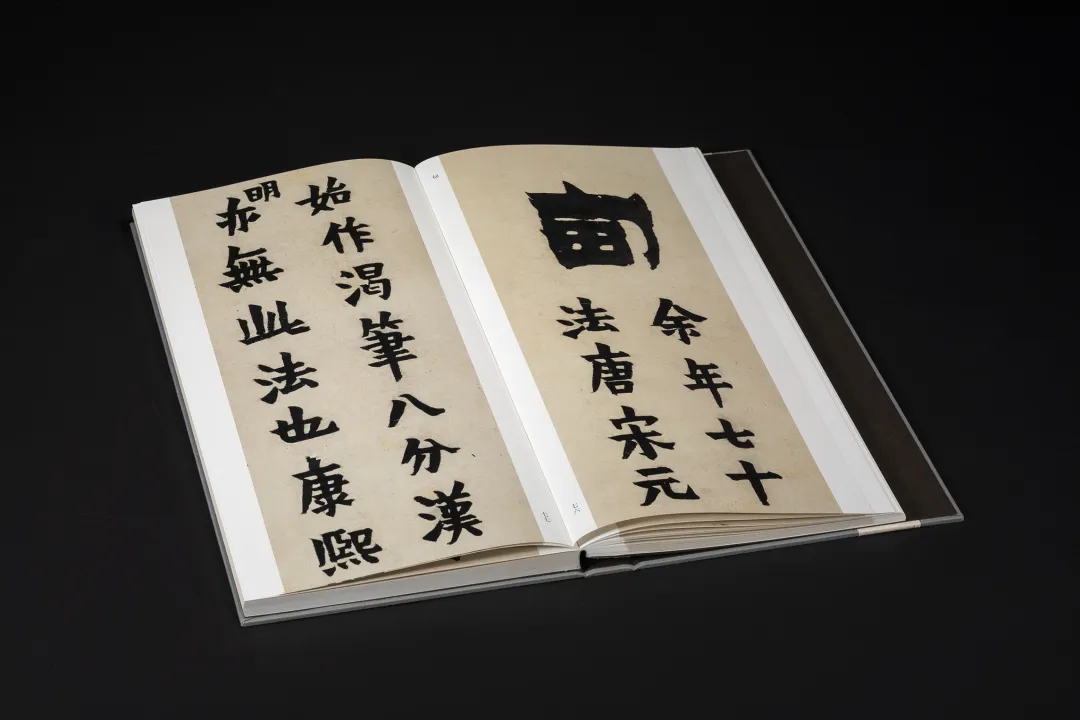 余年七十
法唐宋元
七六
始作渴筆八分漢
明亦無此法也康熙
七七